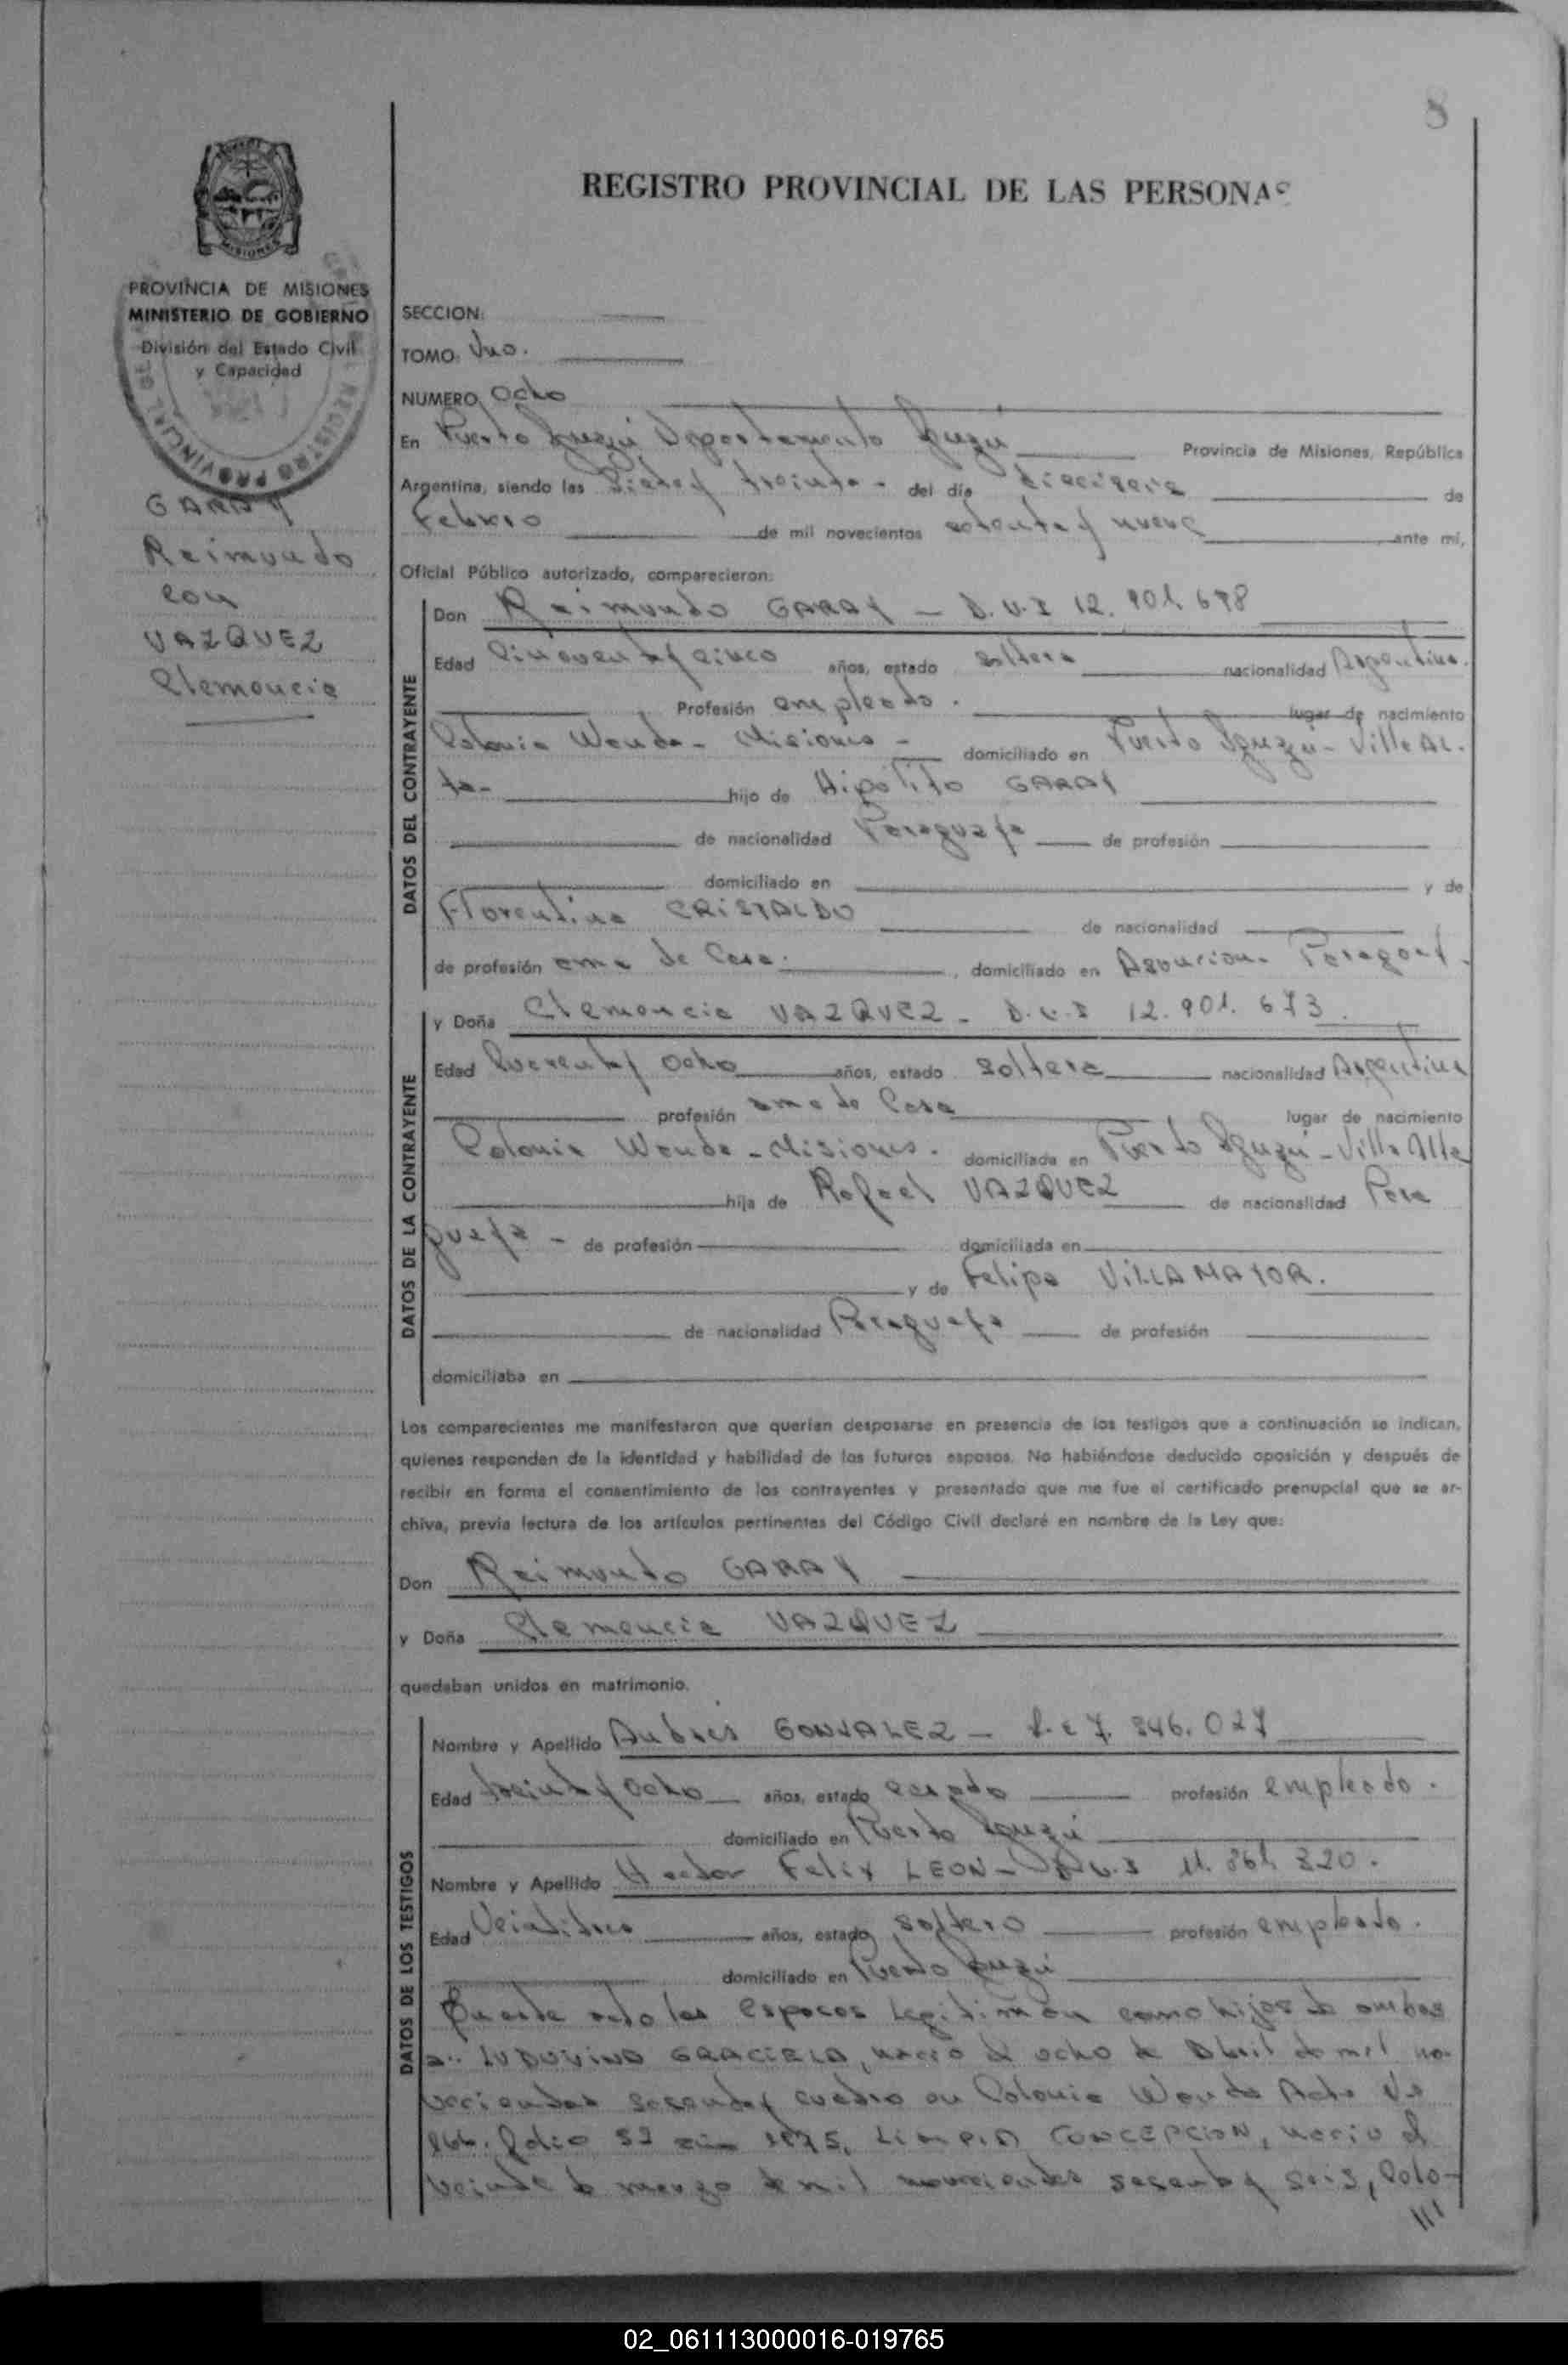 8
REGISTRO PROVINCIAL DE LAS PERSONAS
MISIONES
PROVINCIA DE MISIONES
MINISTERIO DE GOBIERNO
División del Estado Civil
y Capacidad
REGISTRO PROVINCIAL DE
GARAY
Reimundo
con
VAZQUEZ
Clemencia
SECCION:
TOMO: Uno.
NUMERO Ocho
En Puerto Iguazú Departamento Iguazú Provincia de Misiones, República
Argentina, siendo las Siete y treinta - del día dieciseis de
Febrero de mil novecientos setenta y nueve ante mí,
Oficial Público autorizado, comparecieron:
DATOS DEL CONTRAYENTE
Don Reimundo GARAY - D.N.I 12.901.698
Edad Cincuenta y cinco años, estado soltero nacionalidad Argentina.
Profesión empleado. lugar de nacimiento
Colonia Wanda - Misiones - domiciliado en Puerto Iguazú - Villa Al-
ta- hijo de Hipólito GARAY
de nacionalidad Paraguaya de profesión
domiciliado en y de
Florentina CRISTALDO de nacionalidad
de profesión ama de Casa. , domiciliado en Asuncion - Paraguay.
DATOS DE LA CONTRAYENTE
y Doña Clemencia VAZQUEZ - D.N.I 12.901.673.
Edad Cuarenta y Ocho años, estado Soltera nacionalidad Argentina
profesión ama de Casa lugar de nacimiento
Colonia Wanda - Misiones. domiciliada en Puerto Iguazú - Villa Alta
hija de Rafael VAZQUEZ de nacionalidad Para
guaya - de profesión domiciliada en
y de Felipa VILLAMAYOR.
de nacionalidad Paraguaya de profesión
domiciliaba en
Los comparecientes me manifestaron que querían desposarse en presencia de los testigos que a continuación se indican,
quienes responden de la identidad y habilidad de los futuros esposos. No habiéndose deducido oposición y después de
recibir en forma el consentimiento de los contrayentes y presentado que me fue el certificado prenupcial que se ar-
chiva, previa lectura de los artículos pertinentes del Código Civil declaré en nombre de la Ley que:
Don Reimundo GARAY
y Doña Clemencia VAZQUEZ
quedaban unidos en matrimonio.
DATOS DE LOS TESTIGOS
Nombre y Apellido Andrés GONZALEZ - L.E 7.846.027
Edad treinta y Ocho años, estado casado profesión empleado.
domiciliado en Puerto Iguazú
Nombre y Apellido Hector Felix LEON - D.N.I 11.361.320.
Edad años, estado soltero profesión empleado.
domiciliado en Puerto Iguazú
En este acto los esposos Legitiman como hijos de ambos
a: LUDOVINA GRACIELA, nacio el ocho de Abril de mil no-
vecientos sesenta y cuatro en Colonia Wanda Acta Nº
Folio 1975, LIMPIA CONCEPCION, nacio el
veinte de marzo de mil novecientos sesenta y seis, Colo-
///
02_061113000016-019765